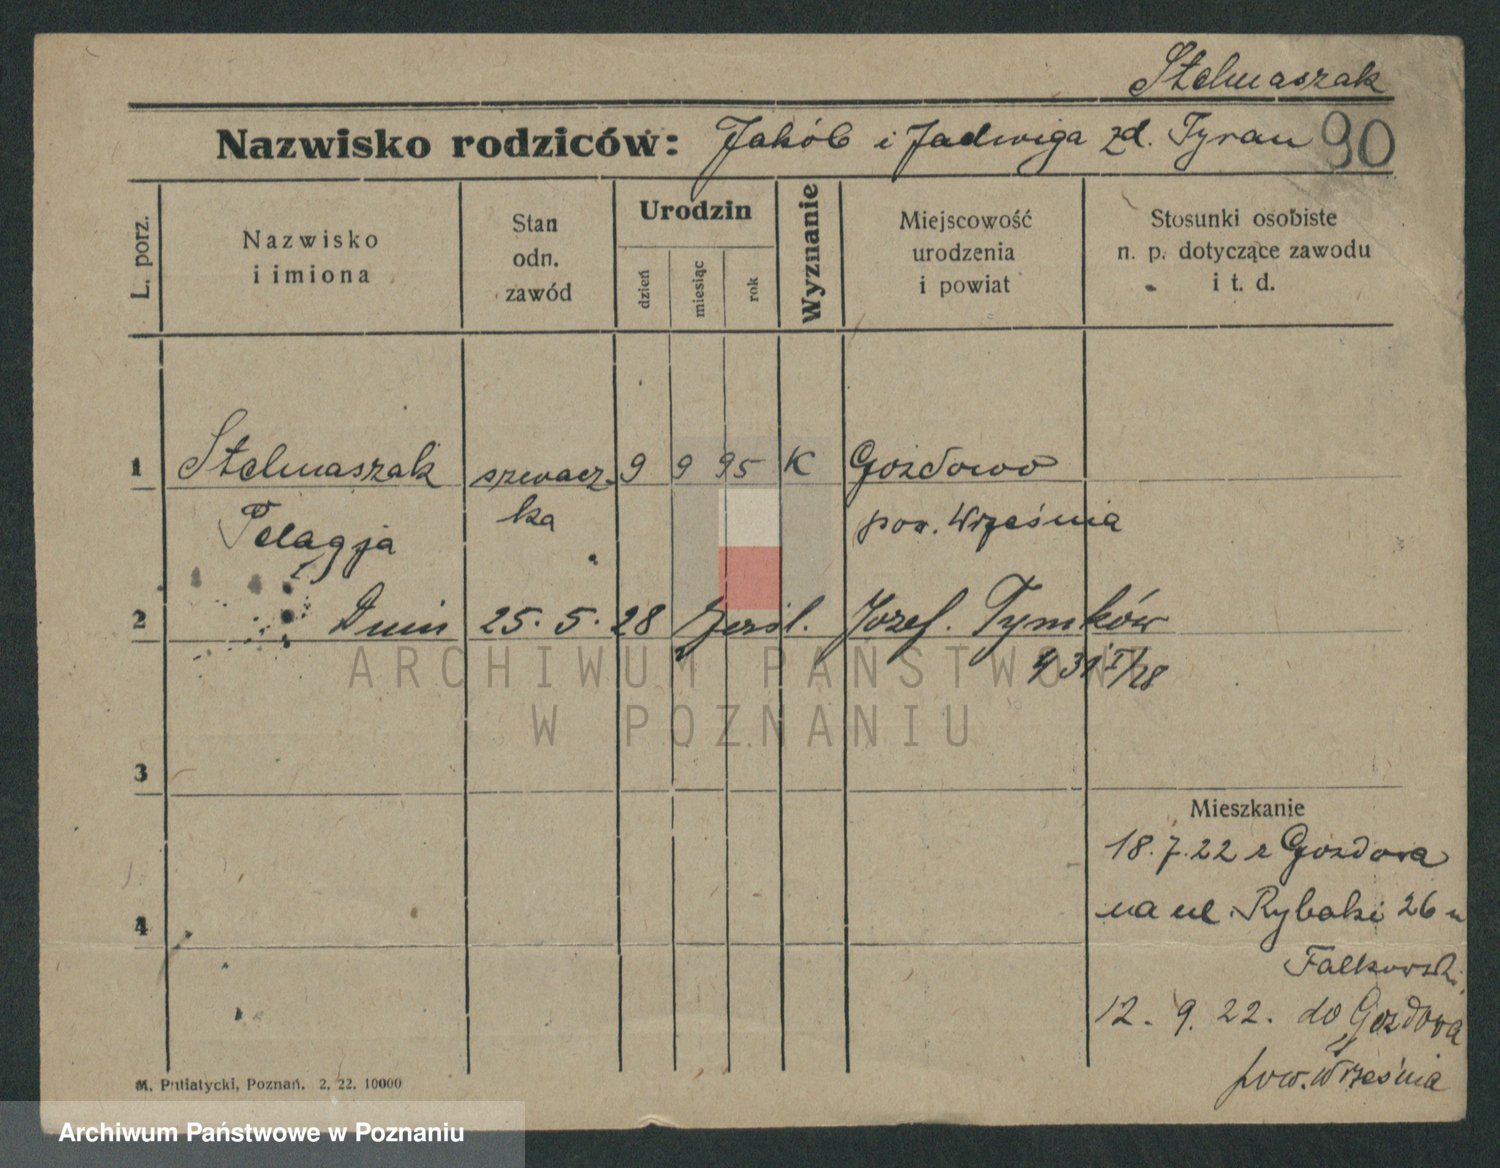 Stelmaszak
Nazwisko rodziców: Jakób i Jadwiga zd. Tyran 90
L. porz.
Nazwisko
i imiona
Stan
odn.
zawód
Urodzin
dzień
miesiąc
rok
Wyznanie
Miejscowość
urodzenia
i powiat
Stosunki osobiste
n. p. dotyczące zawodu
i t. d.
1 Stelmaszak szwacz- 9 9 95 K Gozdowo
Pelagja ka pow. Września
2 Dnia 25. 5. 28 Józef. Tymków
31 I/28
ARCHIWUM PAŃSTWOWE
W POZNANIU
3
Mieszkanie
18. 7. 22 z Gozdowa
na ul. Rybaki 26 u
4
Falkowski
12. 9. 22. do Gozdowa
pow. Września
M. Putiatycki, Poznań. 2. 22. 10000
Archiwum Państwowe w Poznaniu